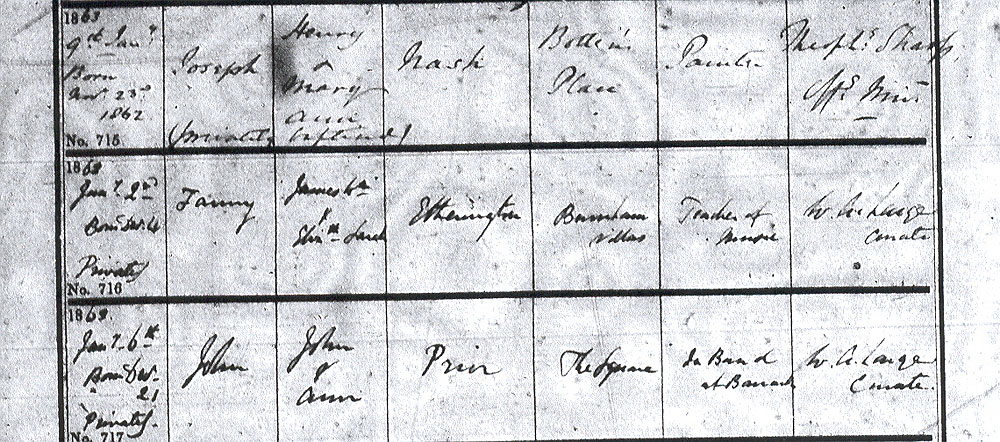 1863
9th Jany
Born
Novr 23rd
1862
No. 715
Joseph
(privately
Henry
&
Mary
Ann
baptized)
Nash
Place
Painter
Theophs Sharp
Offg Minr
1863
Jany 2nd
Privately
No. 716
Fanny
James Wm
&
Elizth Sarah
Etherington
Burnham
villas
Teacher of
Music
W. A. Large
Curate
1863
Jany 6th
Born Decr
21
Privately
No. 717
John
John
&
Ann
Prior
The Square
In Band
at Barracks
W. A. Large
Curate